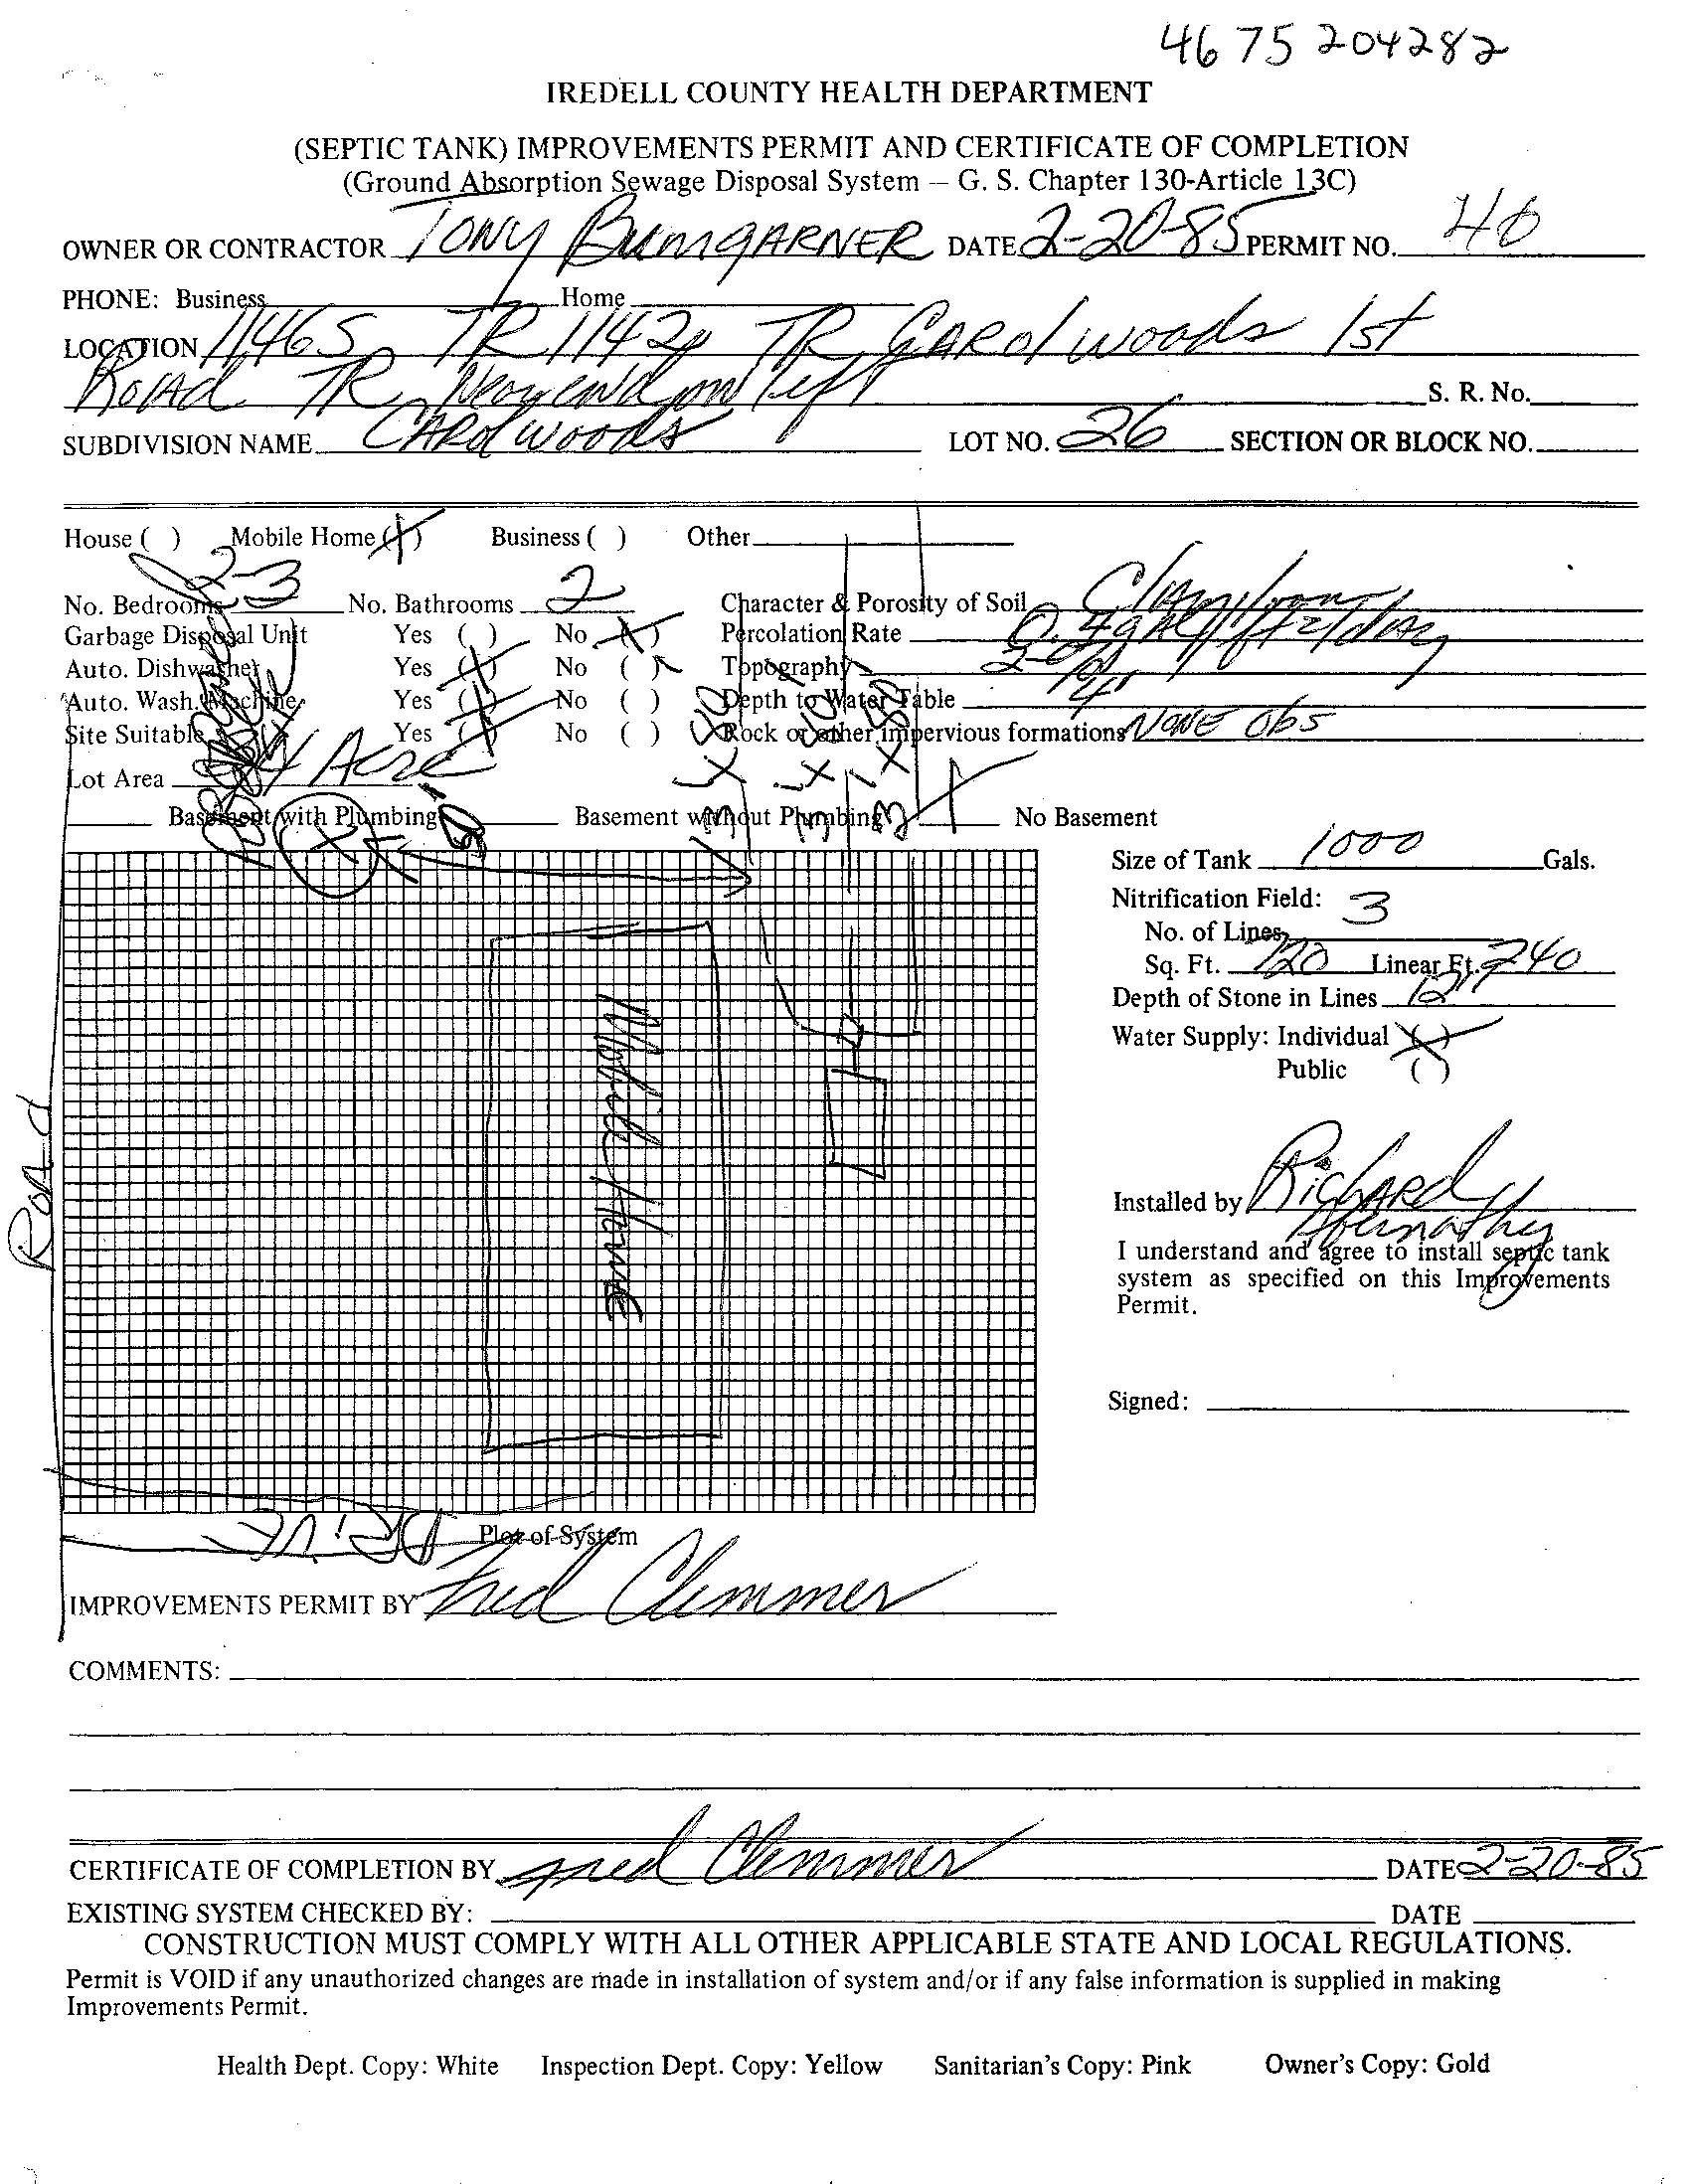 46 75 204282
IREDELL COUNTY HEALTH DEPARTMENT
(SEPTIC TANK) IMPROVEMENTS PERMIT AND CERTIFICATE OF COMPLETION
(Ground Absorption Sewage Disposal System – G. S. Chapter 130-Article 13C)
OWNER OR CONTRACTOR TONY BUMGARNER DATE 2-20-85 PERMIT NO. 40
PHONE: Business Home
LOCATION 1146S TR 1142 TR CAROl woods 1st
ROAd TR Near end on left S. R. No.
SUBDIVISION NAME CAROl woods LOT NO. 26 SECTION OR BLOCK NO.
House ( ) Mobile Home (X) Business ( ) Other
No. Bedrooms 2-3 No. Bathrooms 2 Character & Porosity of Soil
Garbage Disposal Unit Yes ( ) No (X) Percolation Rate
Auto. Dishwasher Yes (X) No ( ) Topography
Auto. Wash. Machine Yes (X) No ( ) Depth to Water Table 4'
Site Suitable Yes (X) No ( ) Rock or other impervious formations NONE Obs
Lot Area Acre
Basement with Plumbing Basement without Plumbing X No Basement
3 x 80
3 x 80
3 x 80
Size of Tank 1000 Gals.
Nitrification Field:
No. of Lines 3
Sq. Ft. 720 Linear Ft. 240
Depth of Stone in Lines 12"
Water Supply: Individual (X)
Public ( )
Road
Mobile Home
Installed by RichARD Abernathy
I understand and agree to install septic tank
system as specified on this Improvements
Permit.
Signed:
DRIVE
Plot of System
IMPROVEMENTS PERMIT BY Fred Clemmer
COMMENTS:
CERTIFICATE OF COMPLETION BY Fred Clemmer DATE 2-20-85
EXISTING SYSTEM CHECKED BY: DATE
CONSTRUCTION MUST COMPLY WITH ALL OTHER APPLICABLE STATE AND LOCAL REGULATIONS.
Permit is VOID if any unauthorized changes are made in installation of system and/or if any false information is supplied in making
Improvements Permit.
Health Dept. Copy: White Inspection Dept. Copy: Yellow Sanitarian's Copy: Pink Owner's Copy: Gold